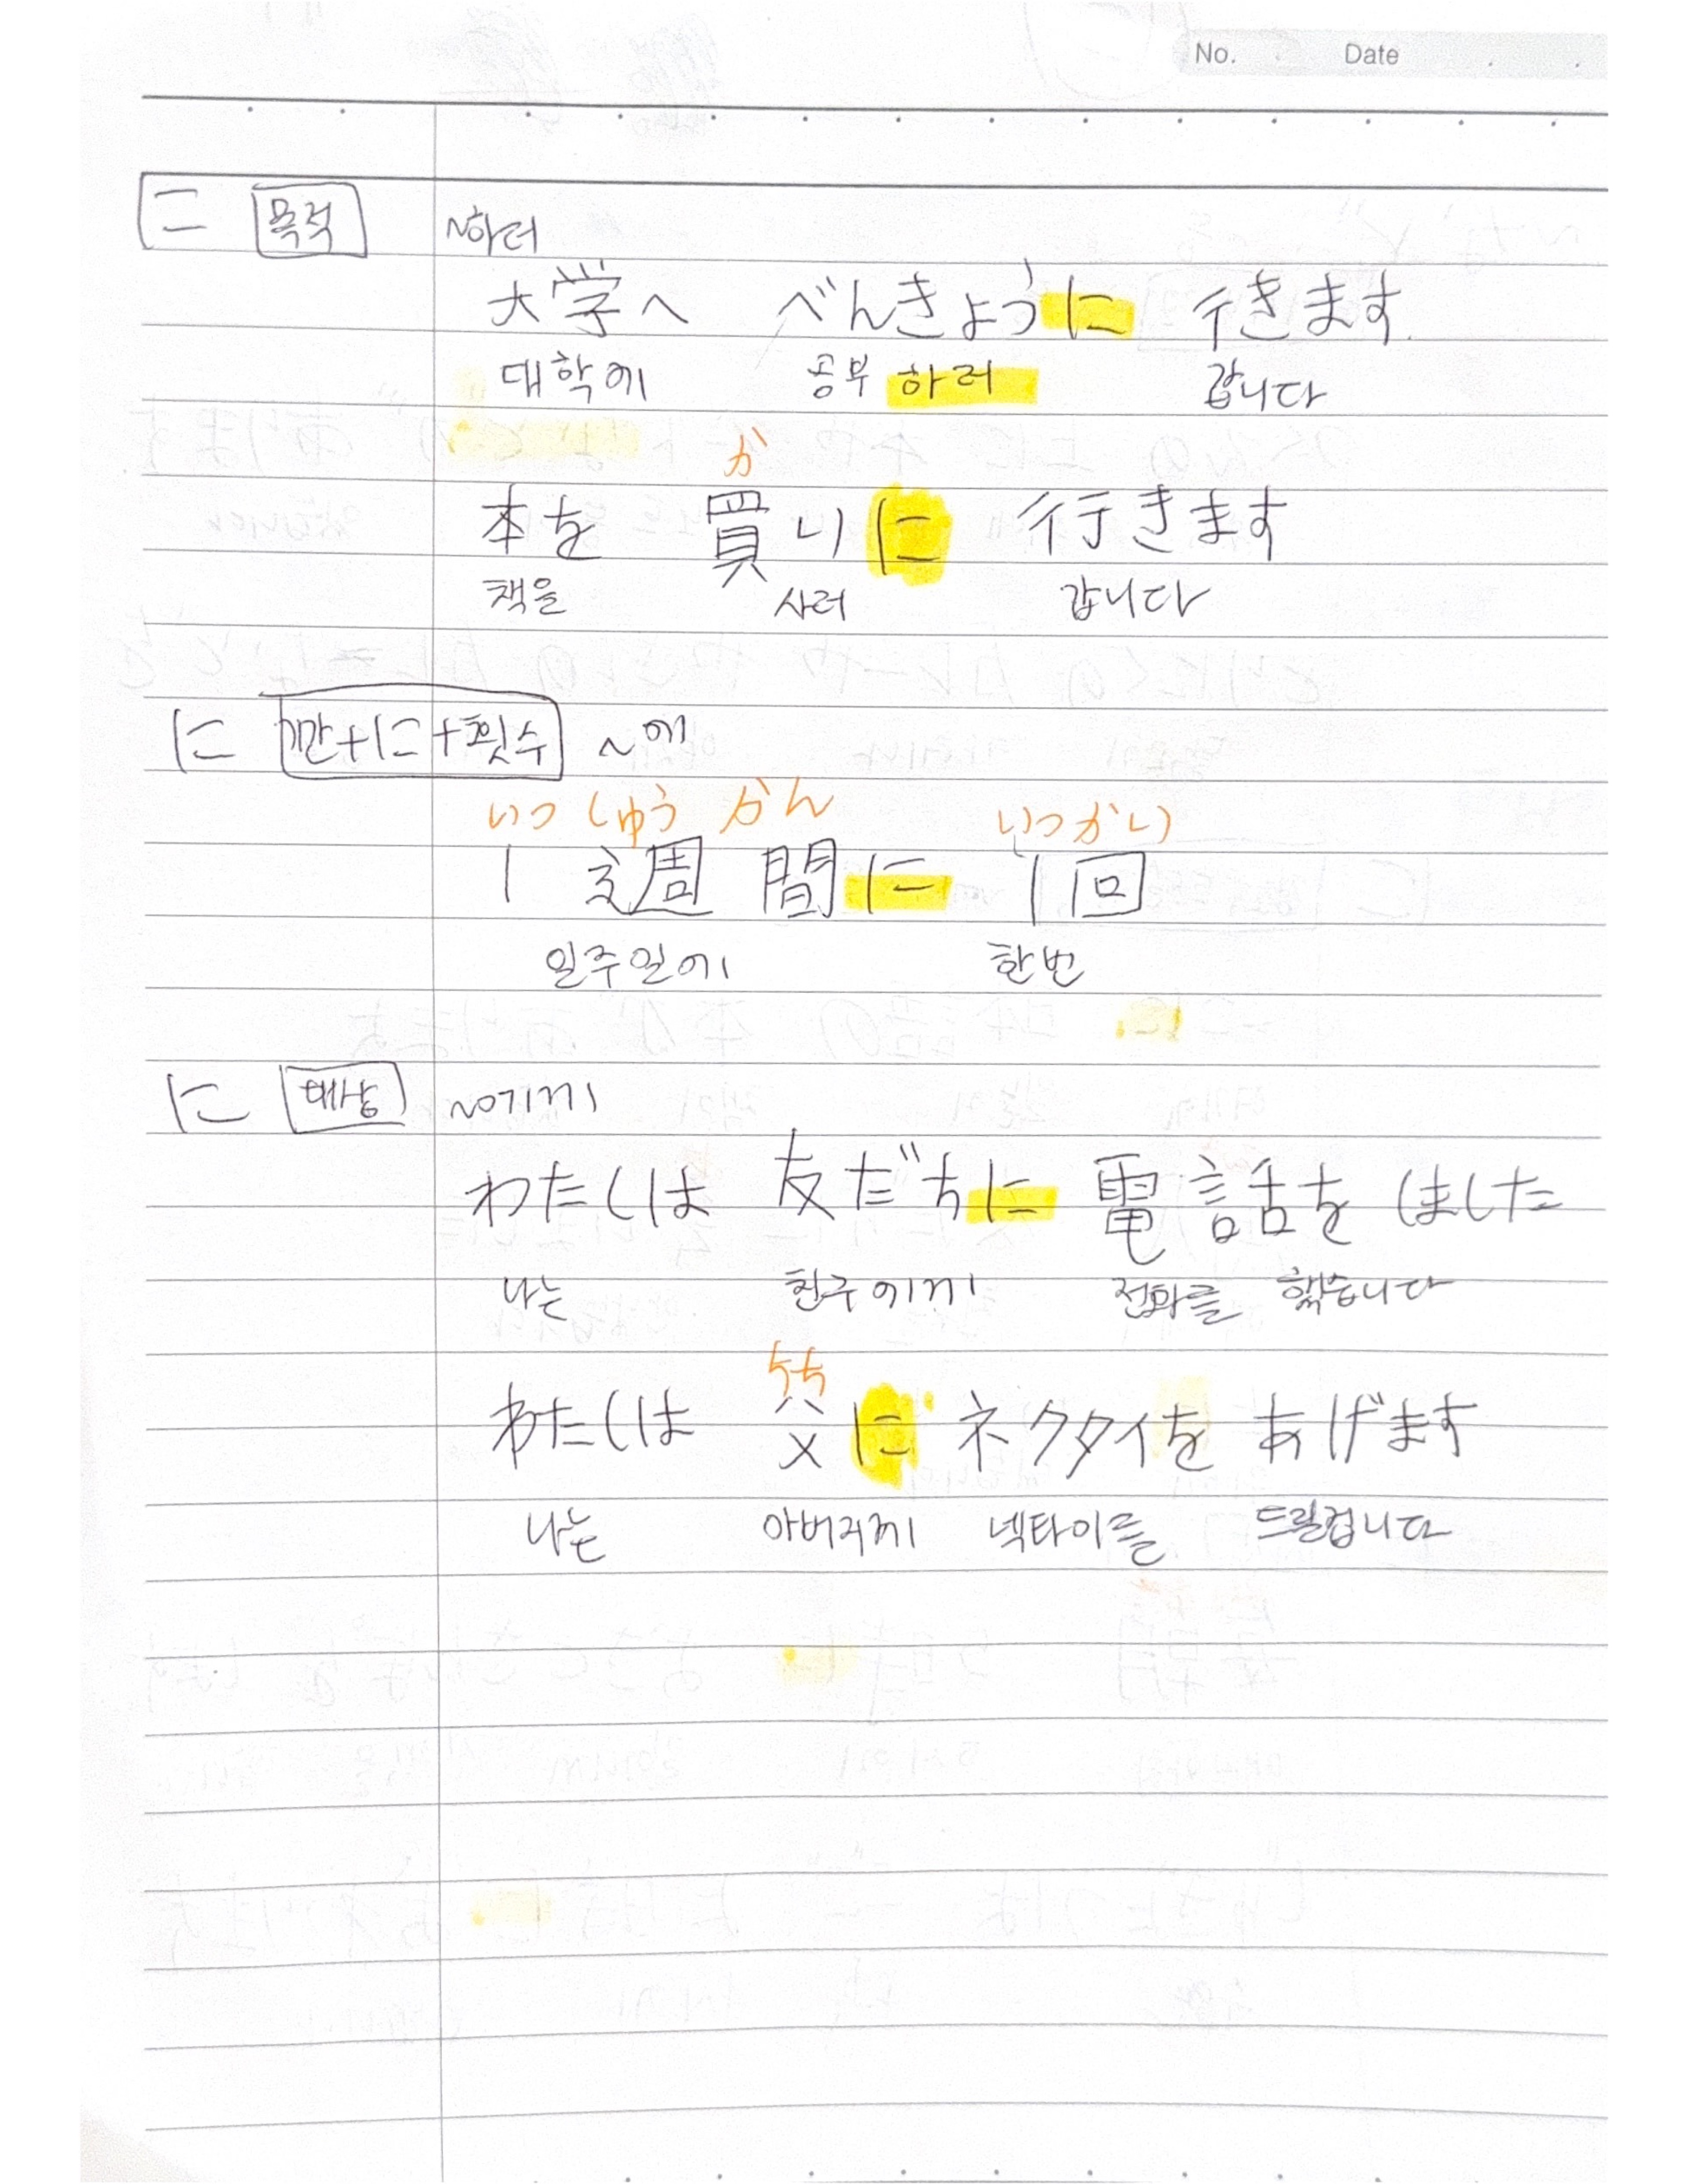 No. Date
に 목적 ~하러
大学へ べんきょうに 行きます.
대학에 공부 하러 갑니다
か
本を 買いに 行きます
책을 사러 갑니다
に +に+횟수 ~에
いっ しゅう かん いっかい
1 週 間に 1回
일주일에 한번
に 대상 ~에게
わたしは 友だちに 電話を しました
나는 친구에게 전화를 했습니다
ちち
わたしは 父に ネクタイを あげます
나는 아버지께 넥타이를 드릴겁니다